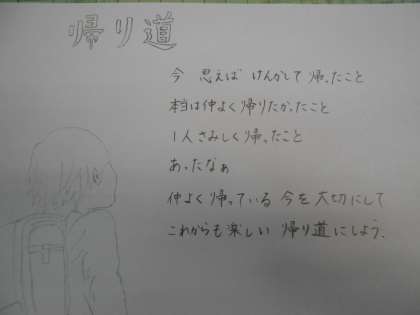 帰り道
今 思えば けんかして 帰ったこと
本当は仲よく帰りたかったこと
1人さみしく帰ったこと
あったなぁ
仲よく帰っている 今を大切にして
これからも楽しい 帰り道にしよう.